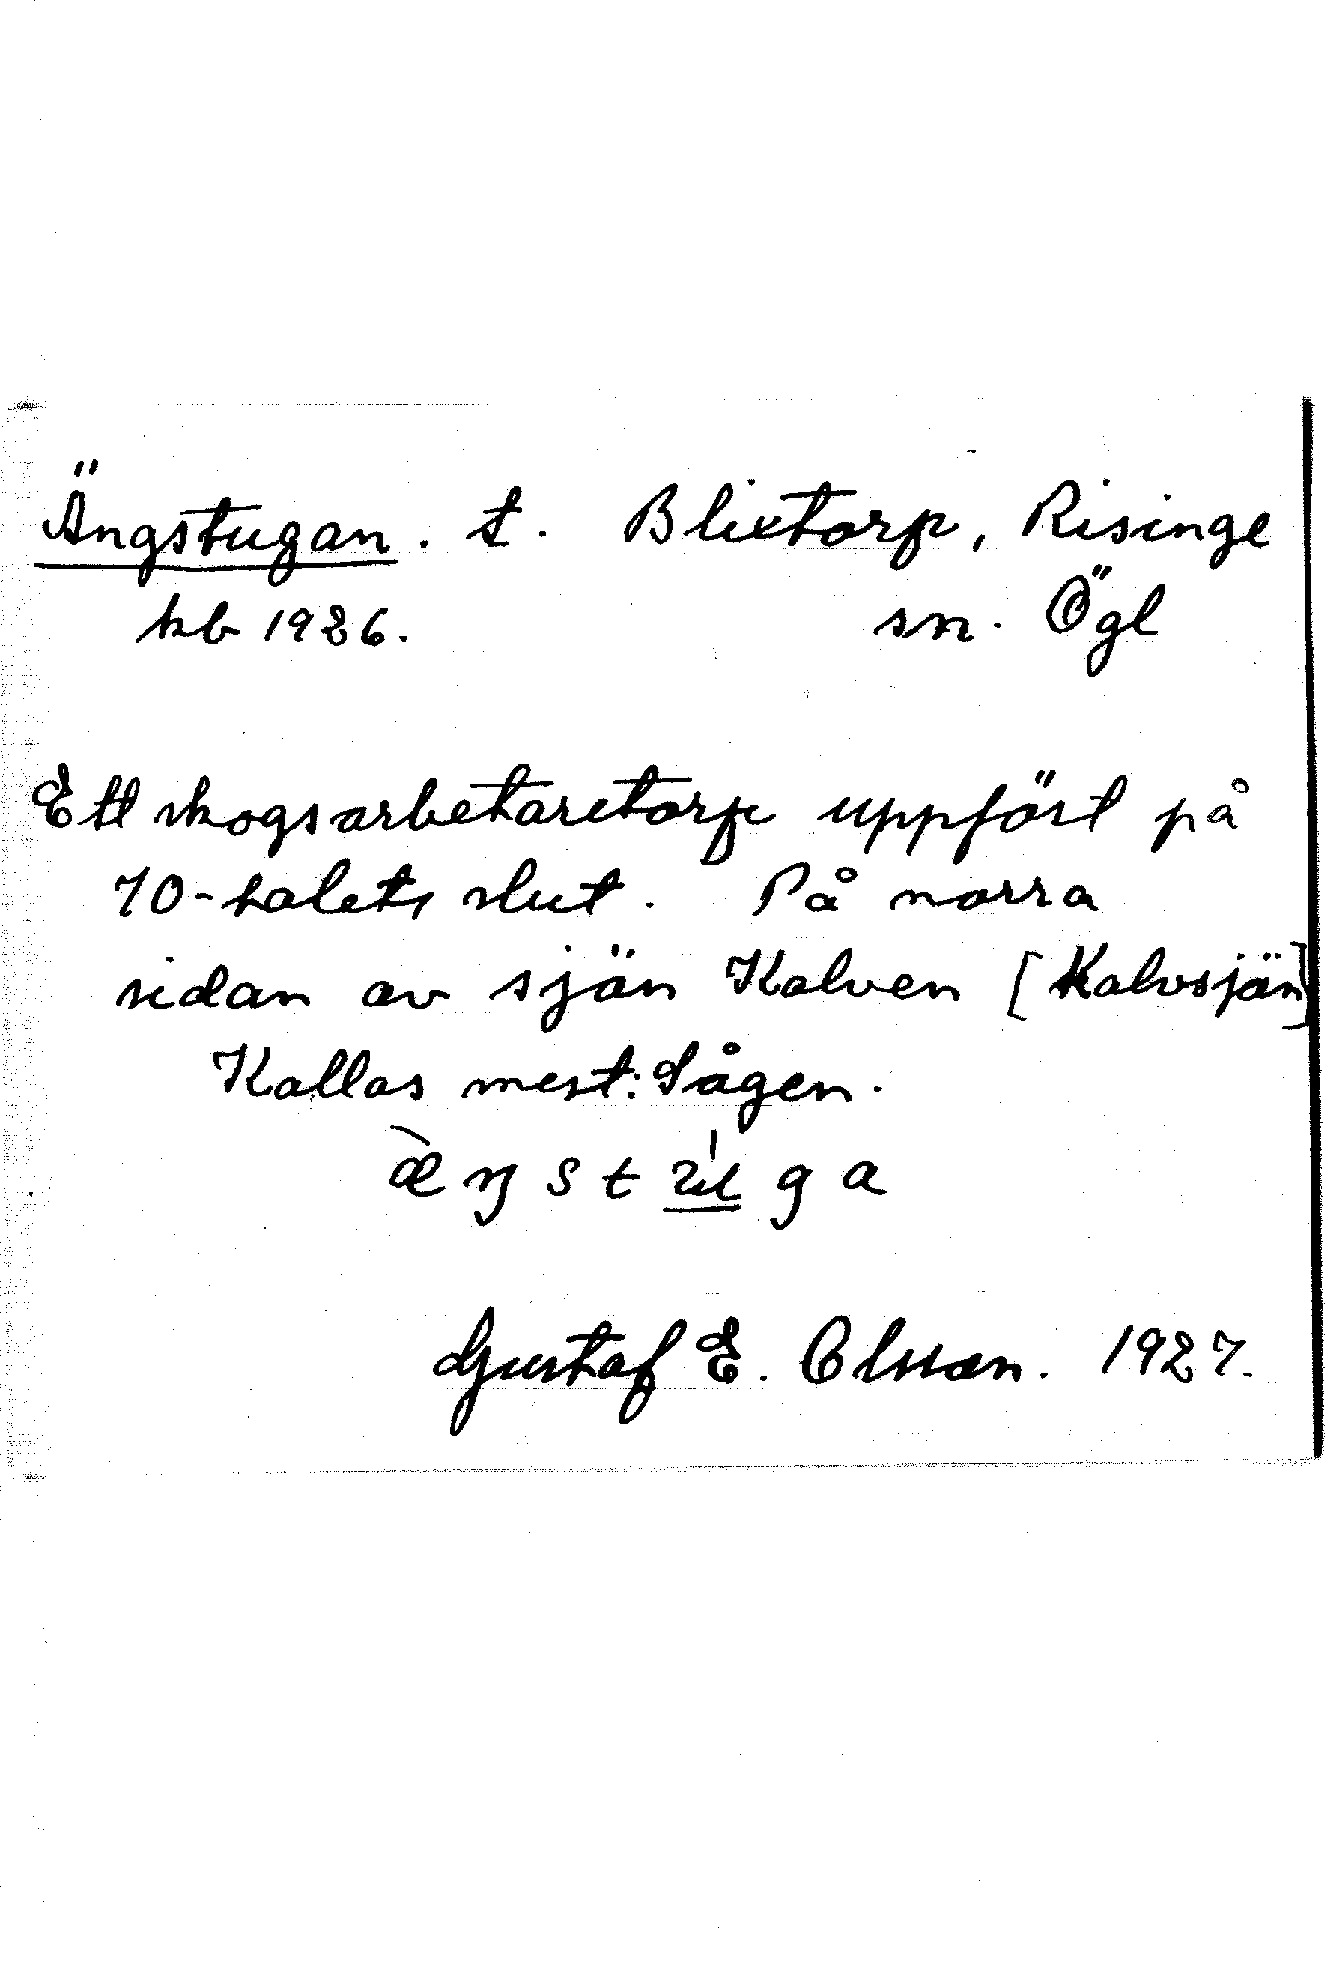 Ängstugan. t. Blixtorp, Risinge
kb 1926. sn. Ögl
Ett skogsarbetaretorp uppfört på
70-talets slut. På norra
sidan av sjön Kalven [Kalvsjön]
Kallas mest: Sågen.
æ̀ŋstu̲ga
Gustaf E. Olsson. 1927.